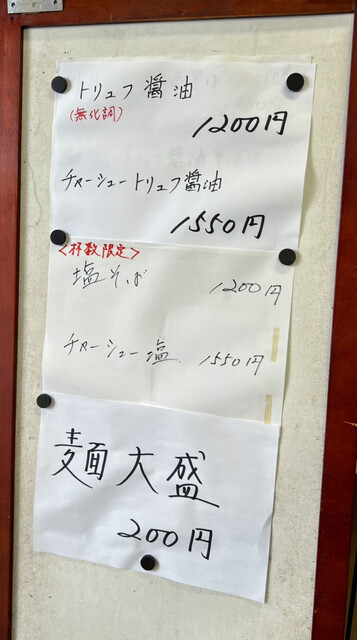 トリュフ醤油
(無化調)
1200円
チャーシュートリュフ醤油
1550円
<杯数限定>
塩そば
1200円
チャーシュー塩
1550円
麺大盛
200円